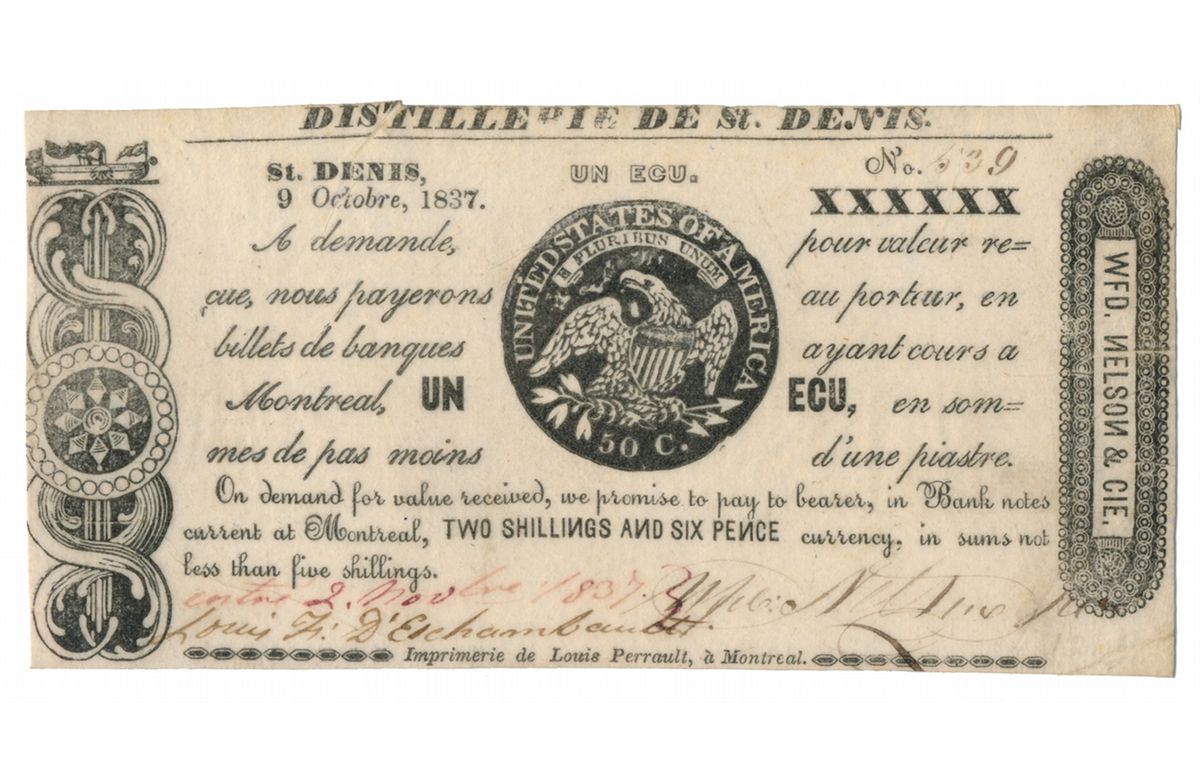 DISTILLERIE DE St. DENIS.
St. DENIS,
9 Octobre, 1837.
UN ECU.
No. 539
XXXXXX
UNITED STATES OF AMERICA
E PLURIBUS UNUM
50 C.
A demande, pour valeur re=
çue, nous payerons au porteur, en
billets de banques ayant cours a
Montreal, UN ECU, en som=
mes de pas moins d'une piastre.
On demand for value received, we promise to pay to bearer, in Bank notes
current at Montreal, TWO SHILLINGS AND SIX PENCE currency, in sums not
less than five shillings.
entré 2. Novbre 1837.
Louis F. D'Eschambault.
Nelson
Imprimerie de Louis Perrault, à Montreal.
WFD. NELSON & CIE.